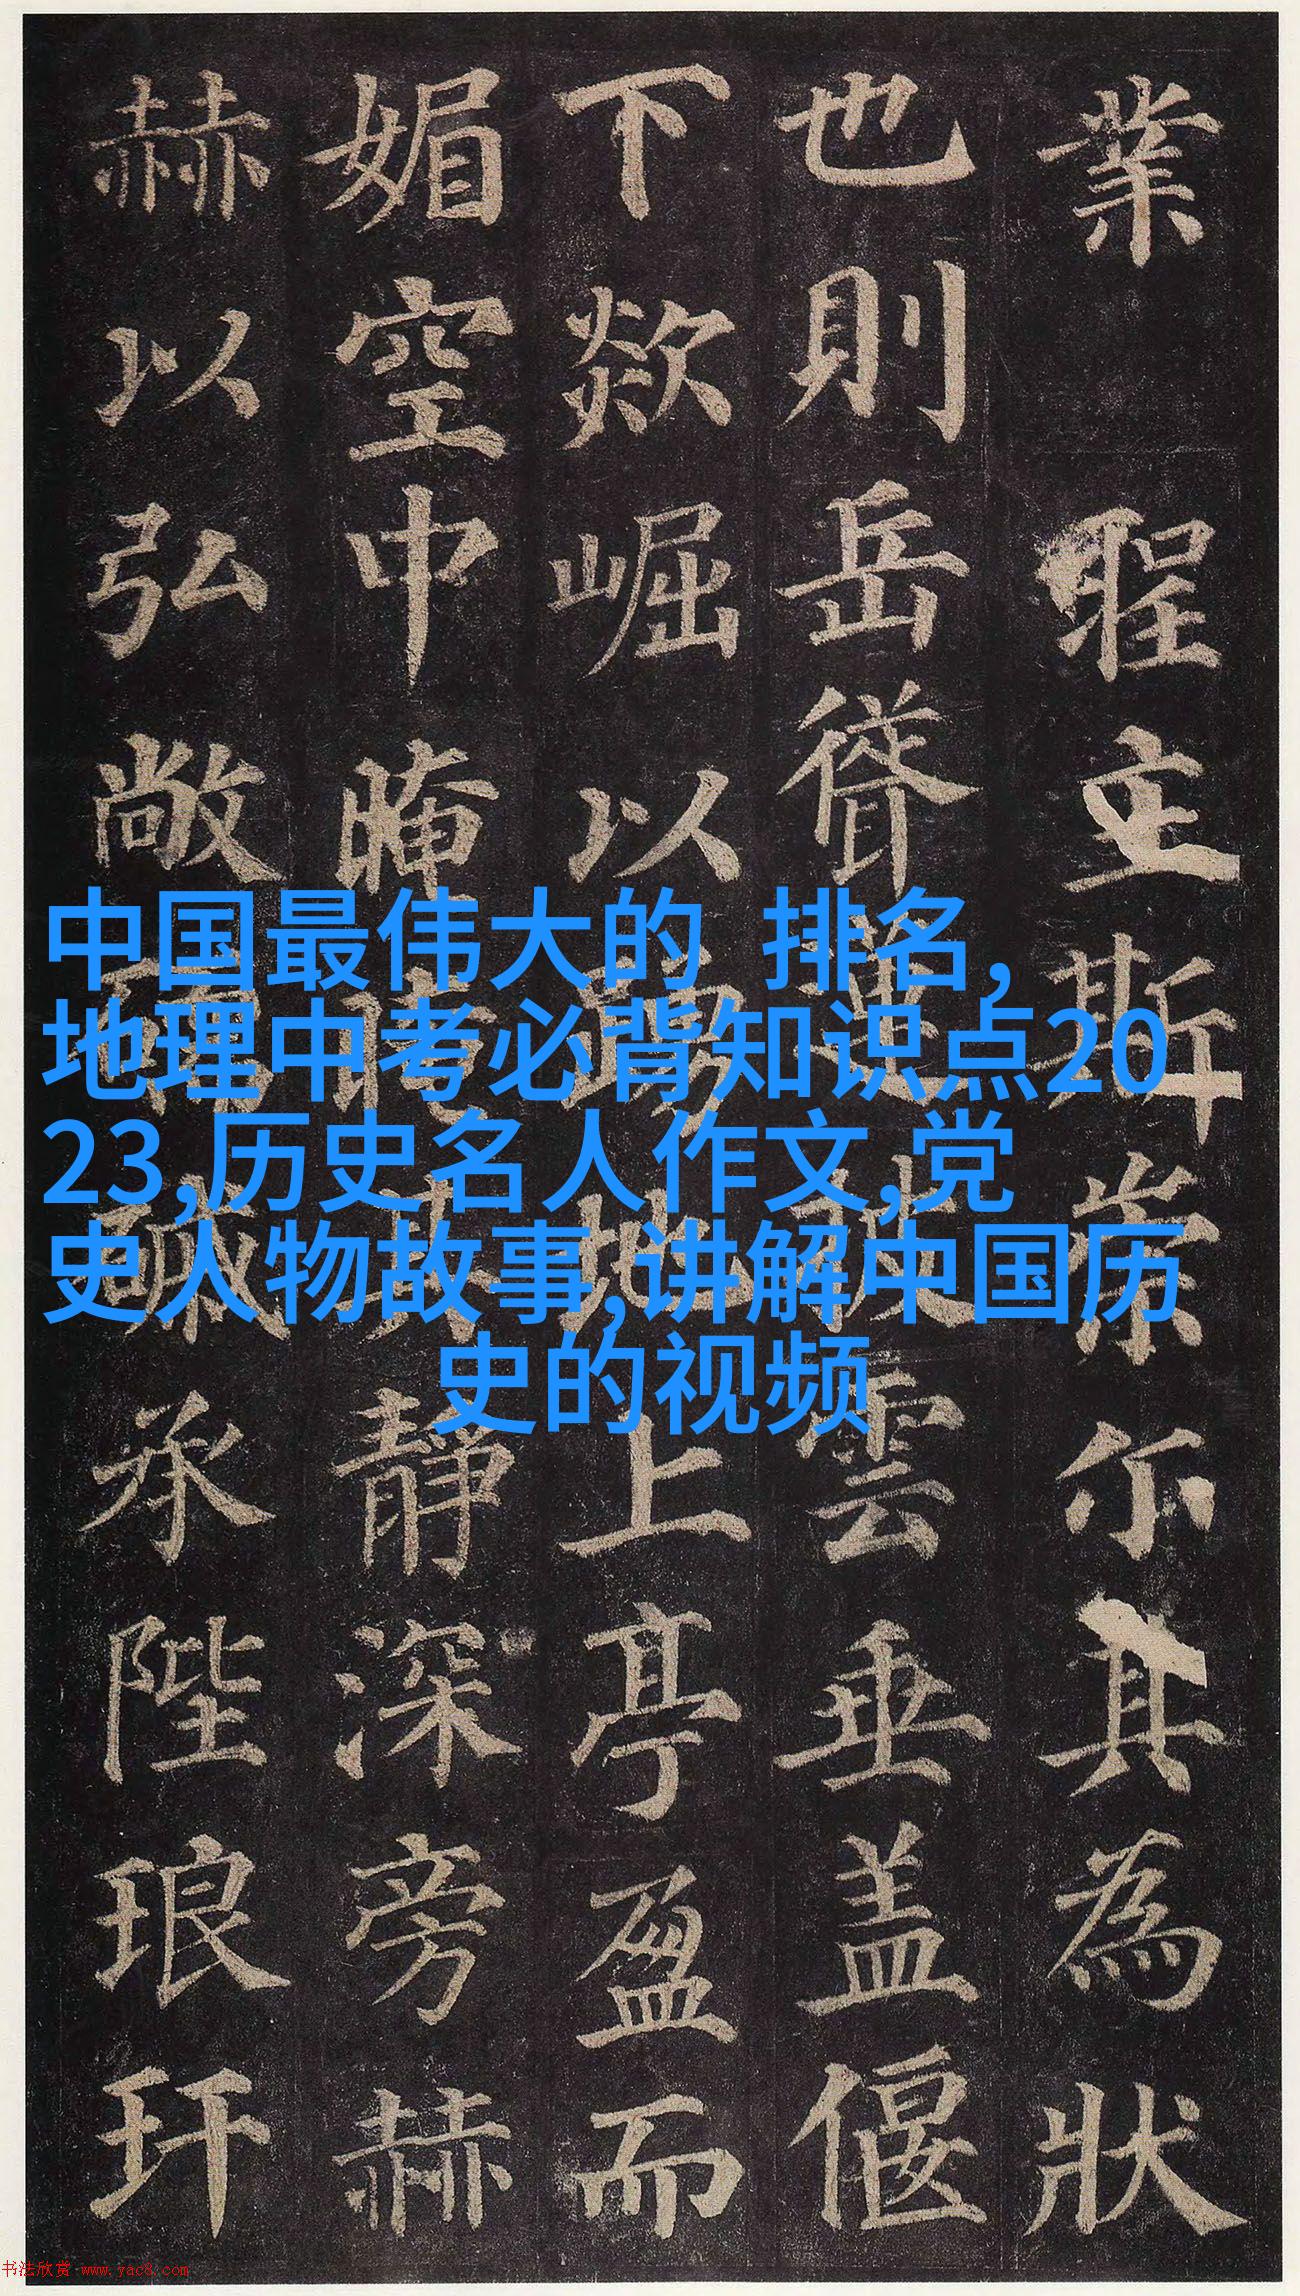 業聖立斯崇尒其為狀
也則岳聳蓮披雲垂盖偃
下欻崛以踊地上亭盈而
媚空中晻晻其静深旁赫
赫以弘敞碝磩承陛琅玕
中国最伟大的 排名,
地理中考必背知识点20
23,历史名人作文,党
史人物故事,讲解中国历
史的视频
书法欣赏 www.yac8.com